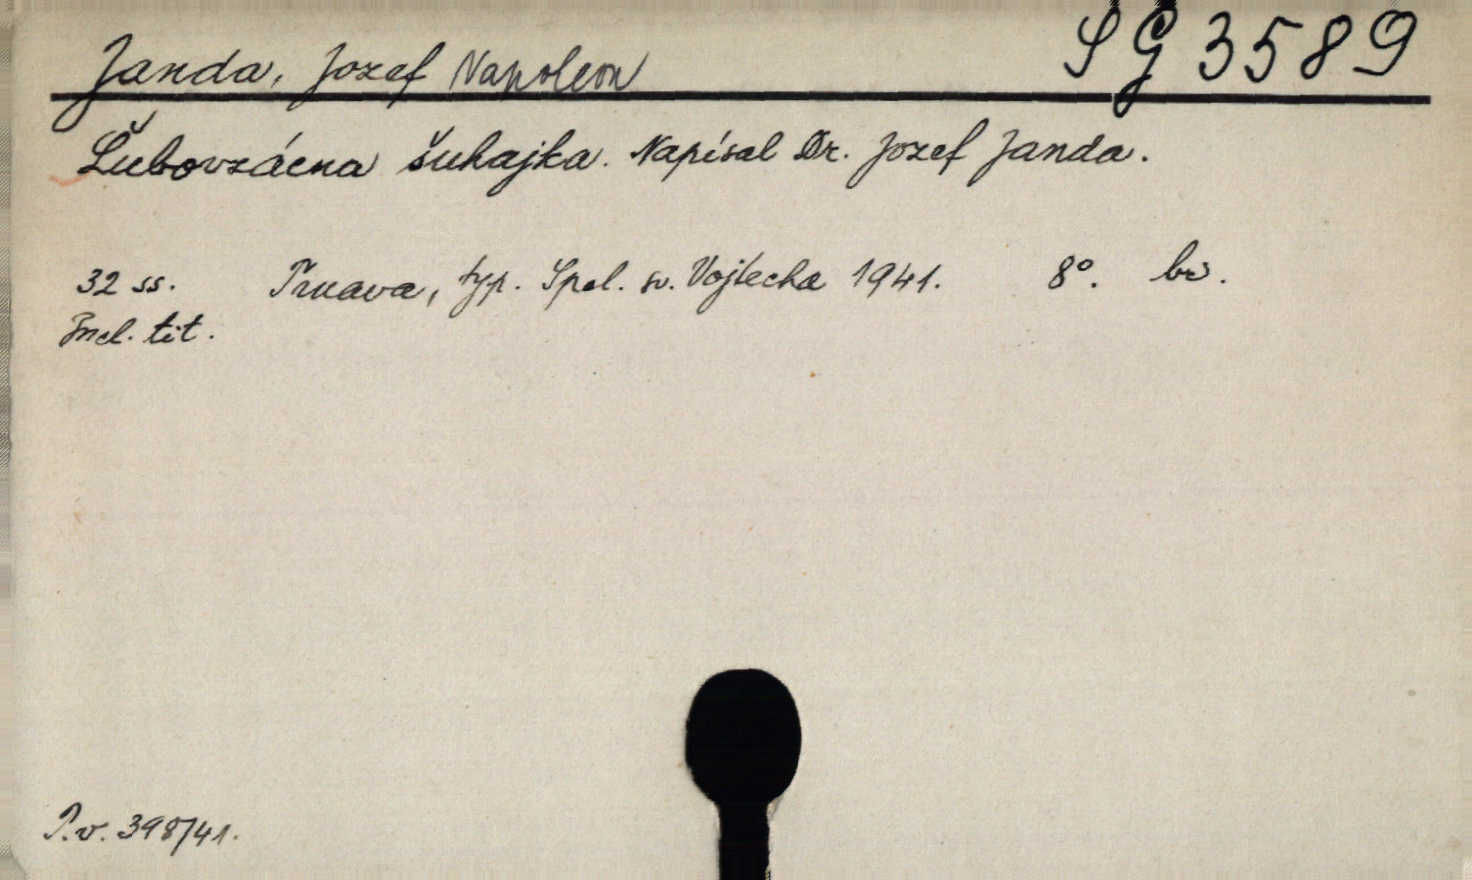 SG 3589
Janda, Jozef Napoleon
Ľubovzácna šuhajka. Napísal Dr. Jozef Janda.
32 ss. Trnava, typ. Spol. sv. Vojtecha 1941. 8°. br.
Incl. tit.
P.v. 398/41.